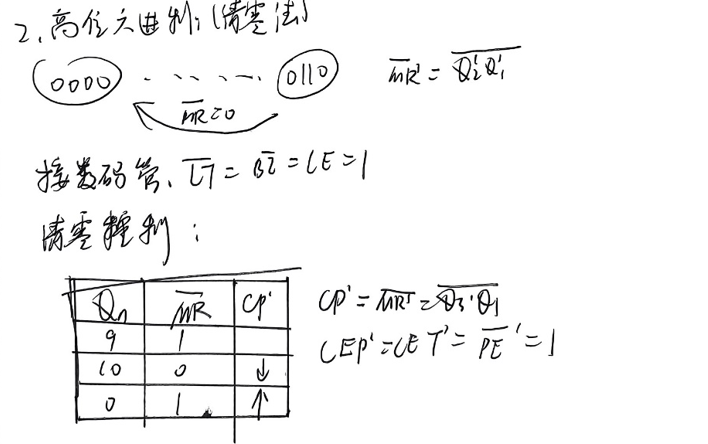 2、高位六进制:(清零法)
0000 ······ 0110 M̅R̅'=Q̅₂'̅Q̅₁'̅
M̅R̅=0
接数码管、L̅T̅=B̅I̅=LE=1
清零 制:
Qn M̅R̅ CP'
9 1
10 0 ↓
0 1 ↑
CP'=M̅R̅'=Q̅₃'̅Q̅₁̅
CEP'=CET'=P̅E̅'=1